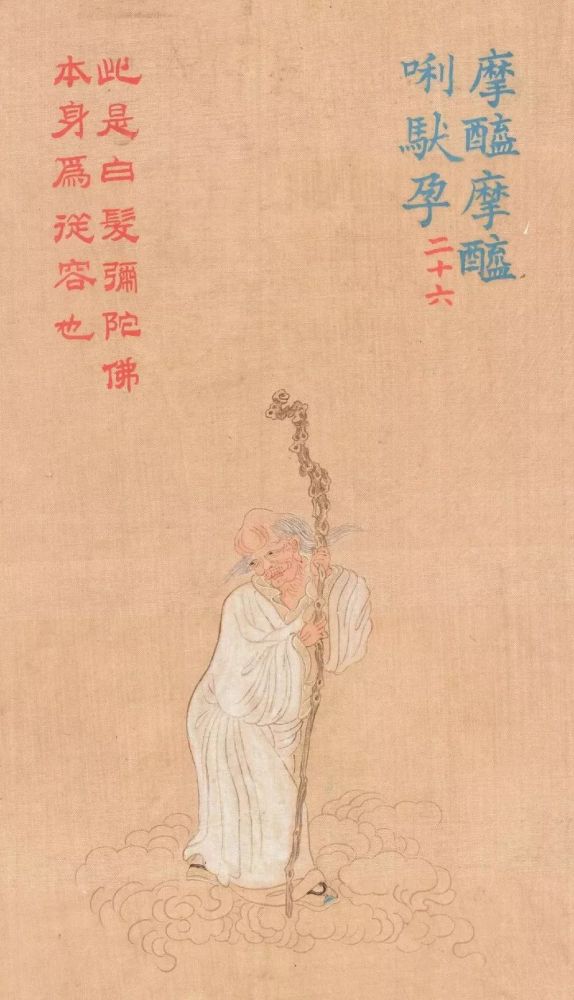 摩醯摩醯
唎馱孕二十六
此是白髮彌陀佛
本身爲從容也